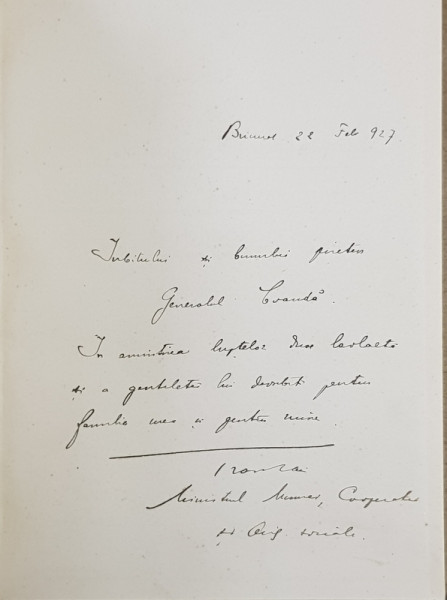 22 Feb 927
Iubitului și bunului prieten
Generalul Coandă.
În amintirea luptelor duse laolaltă
și a gentileței lui deosebite pentru
familia mea și pentru mine
Ministrul Muncei, Cooperației
și Asig. sociale.